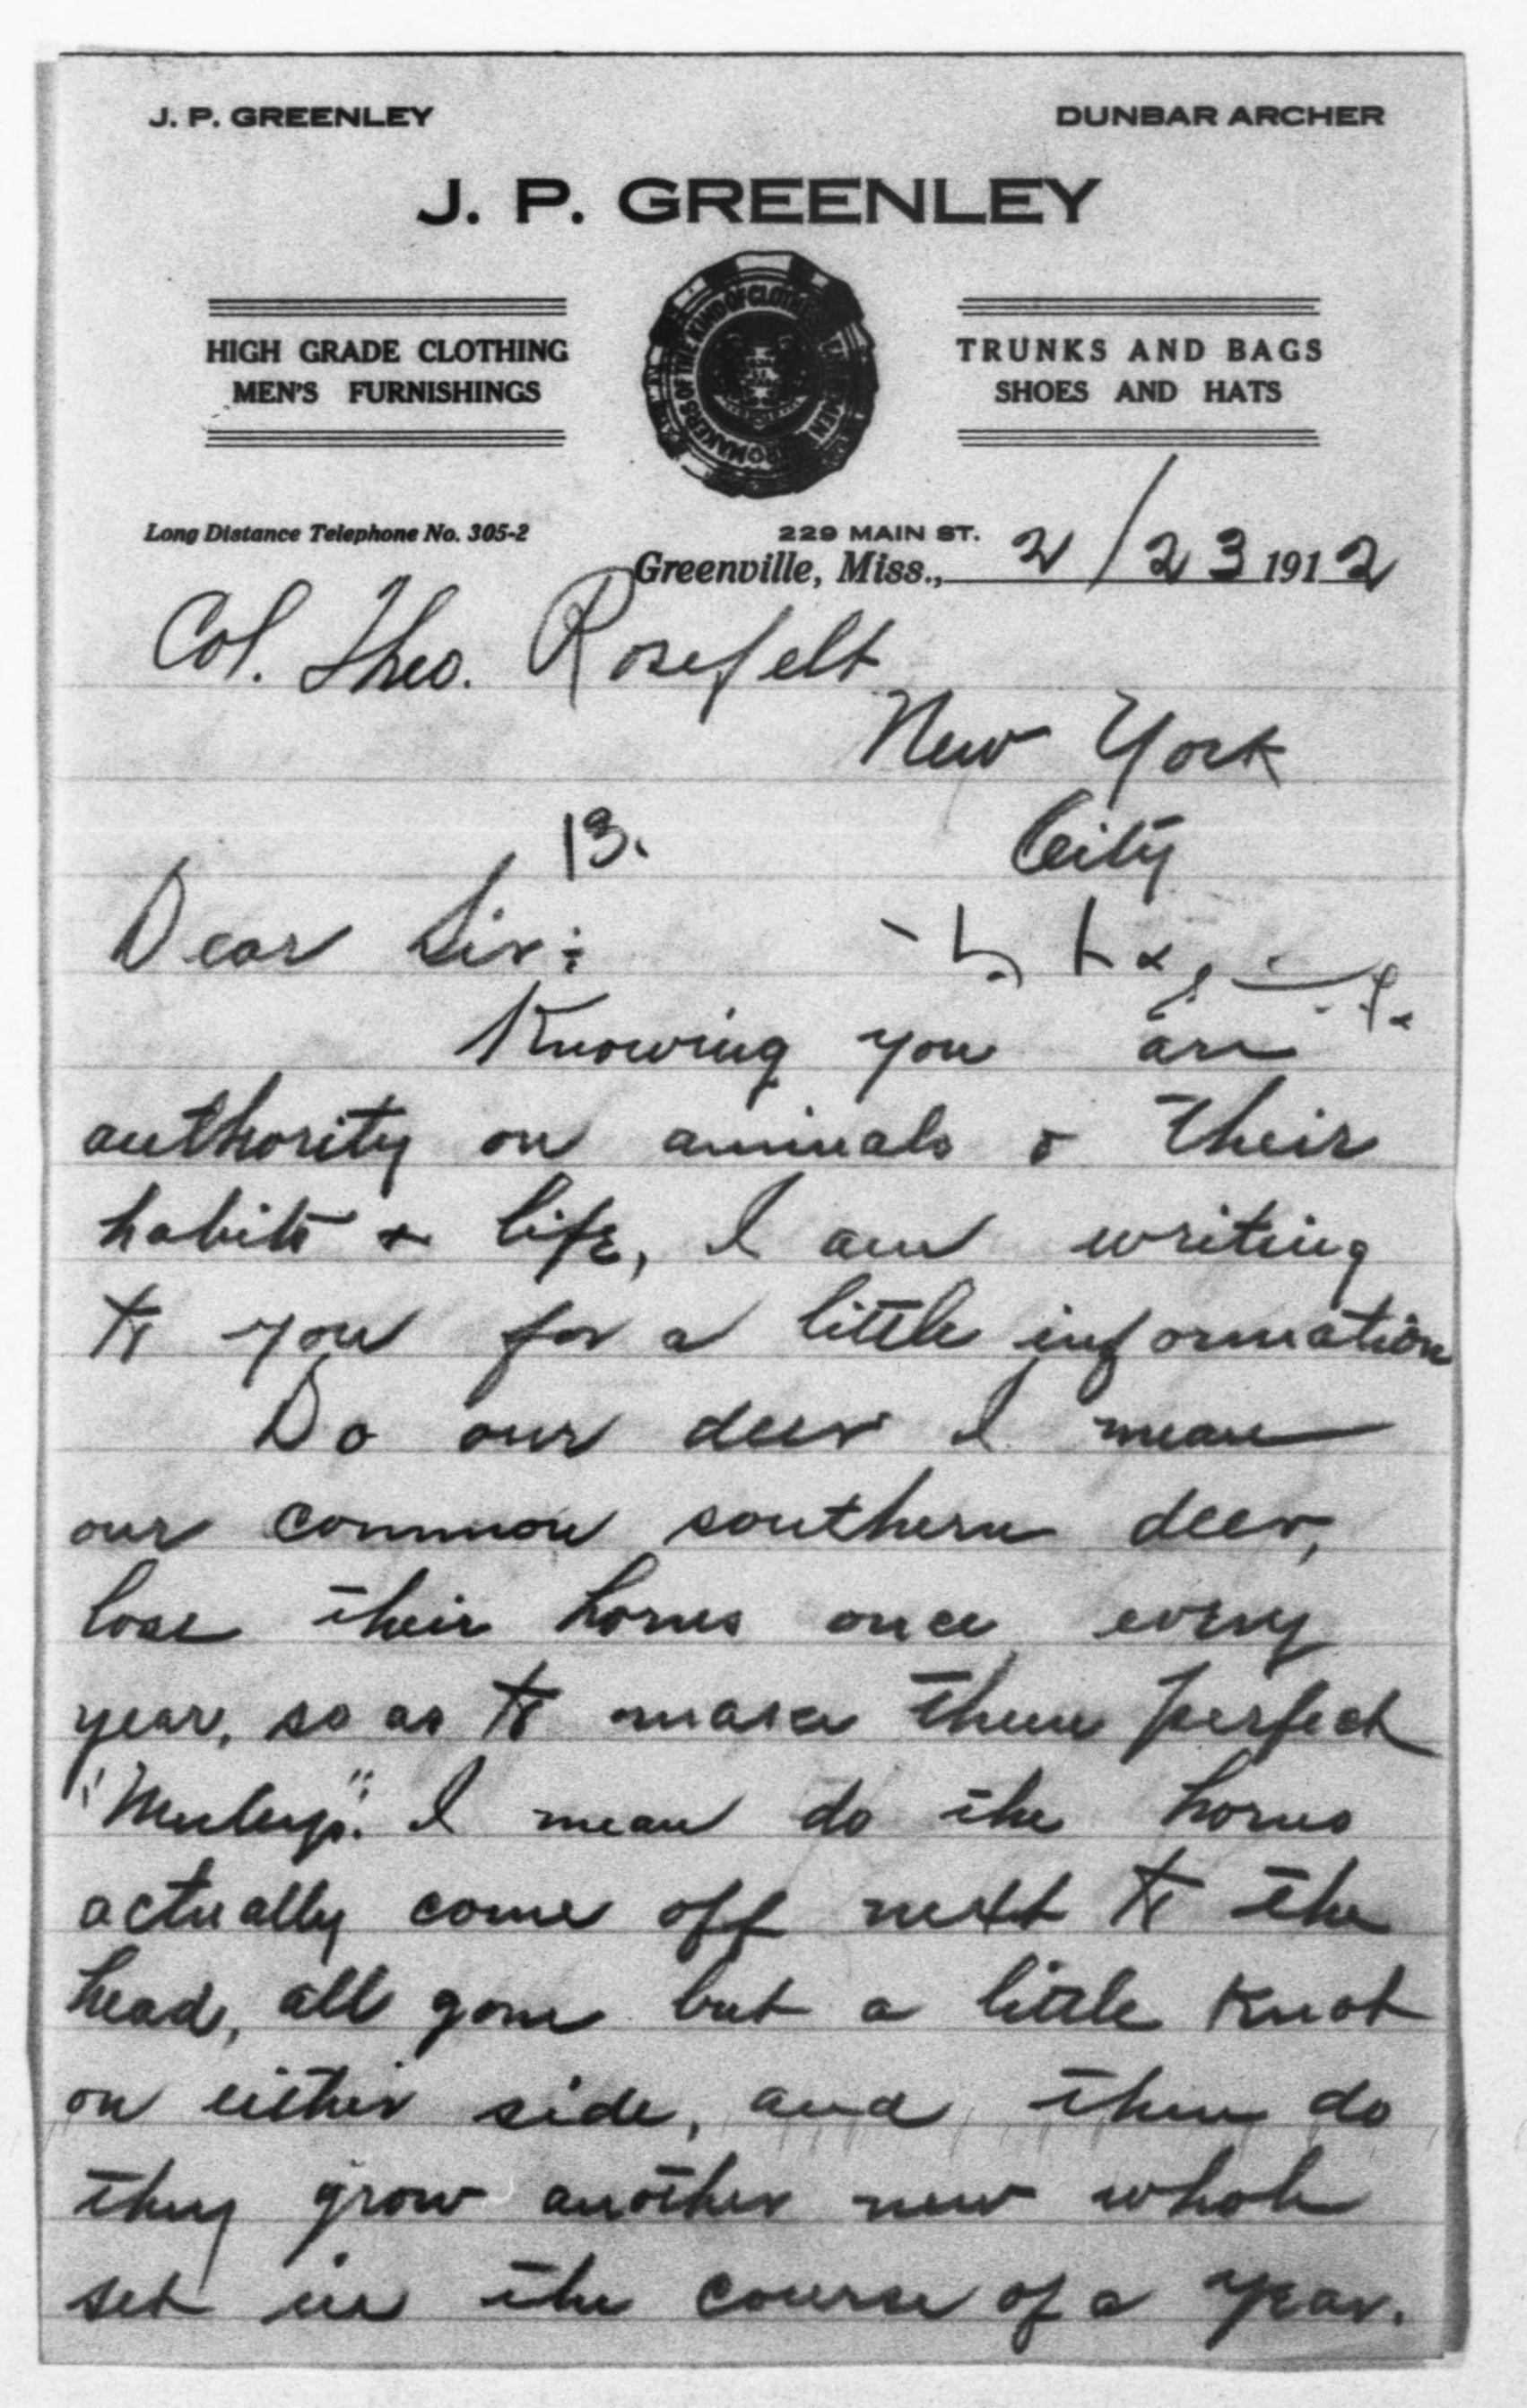 J. P. GREENLEY DUNBAR ARCHER
J. P. GREENLEY
HIGH GRADE CLOTHING
MEN'S FURNISHINGS
MAKERS OF THE KIND OF CLOTHES GENTLEMEN WEAR
TRUNKS AND BAGS
SHOES AND HATS
Long Distance Telephone No. 305-2
229 MAIN ST.
Greenville, Miss., 2/23 1912
Col. Theo. Rosefelt
New York
City
13.
Dear Sir:
Knowing you are
authority on animals & their
habits & life, I am writing
to you for a little information
Do our deer I mean
our common southern deer,
lose their horns once every
year, so as to make them perfect
"Muleys". I mean do the horns
actually come off next to the
head, all gone but a little knot
on either side, and then do
they grow another new whole
set in the course of a year.